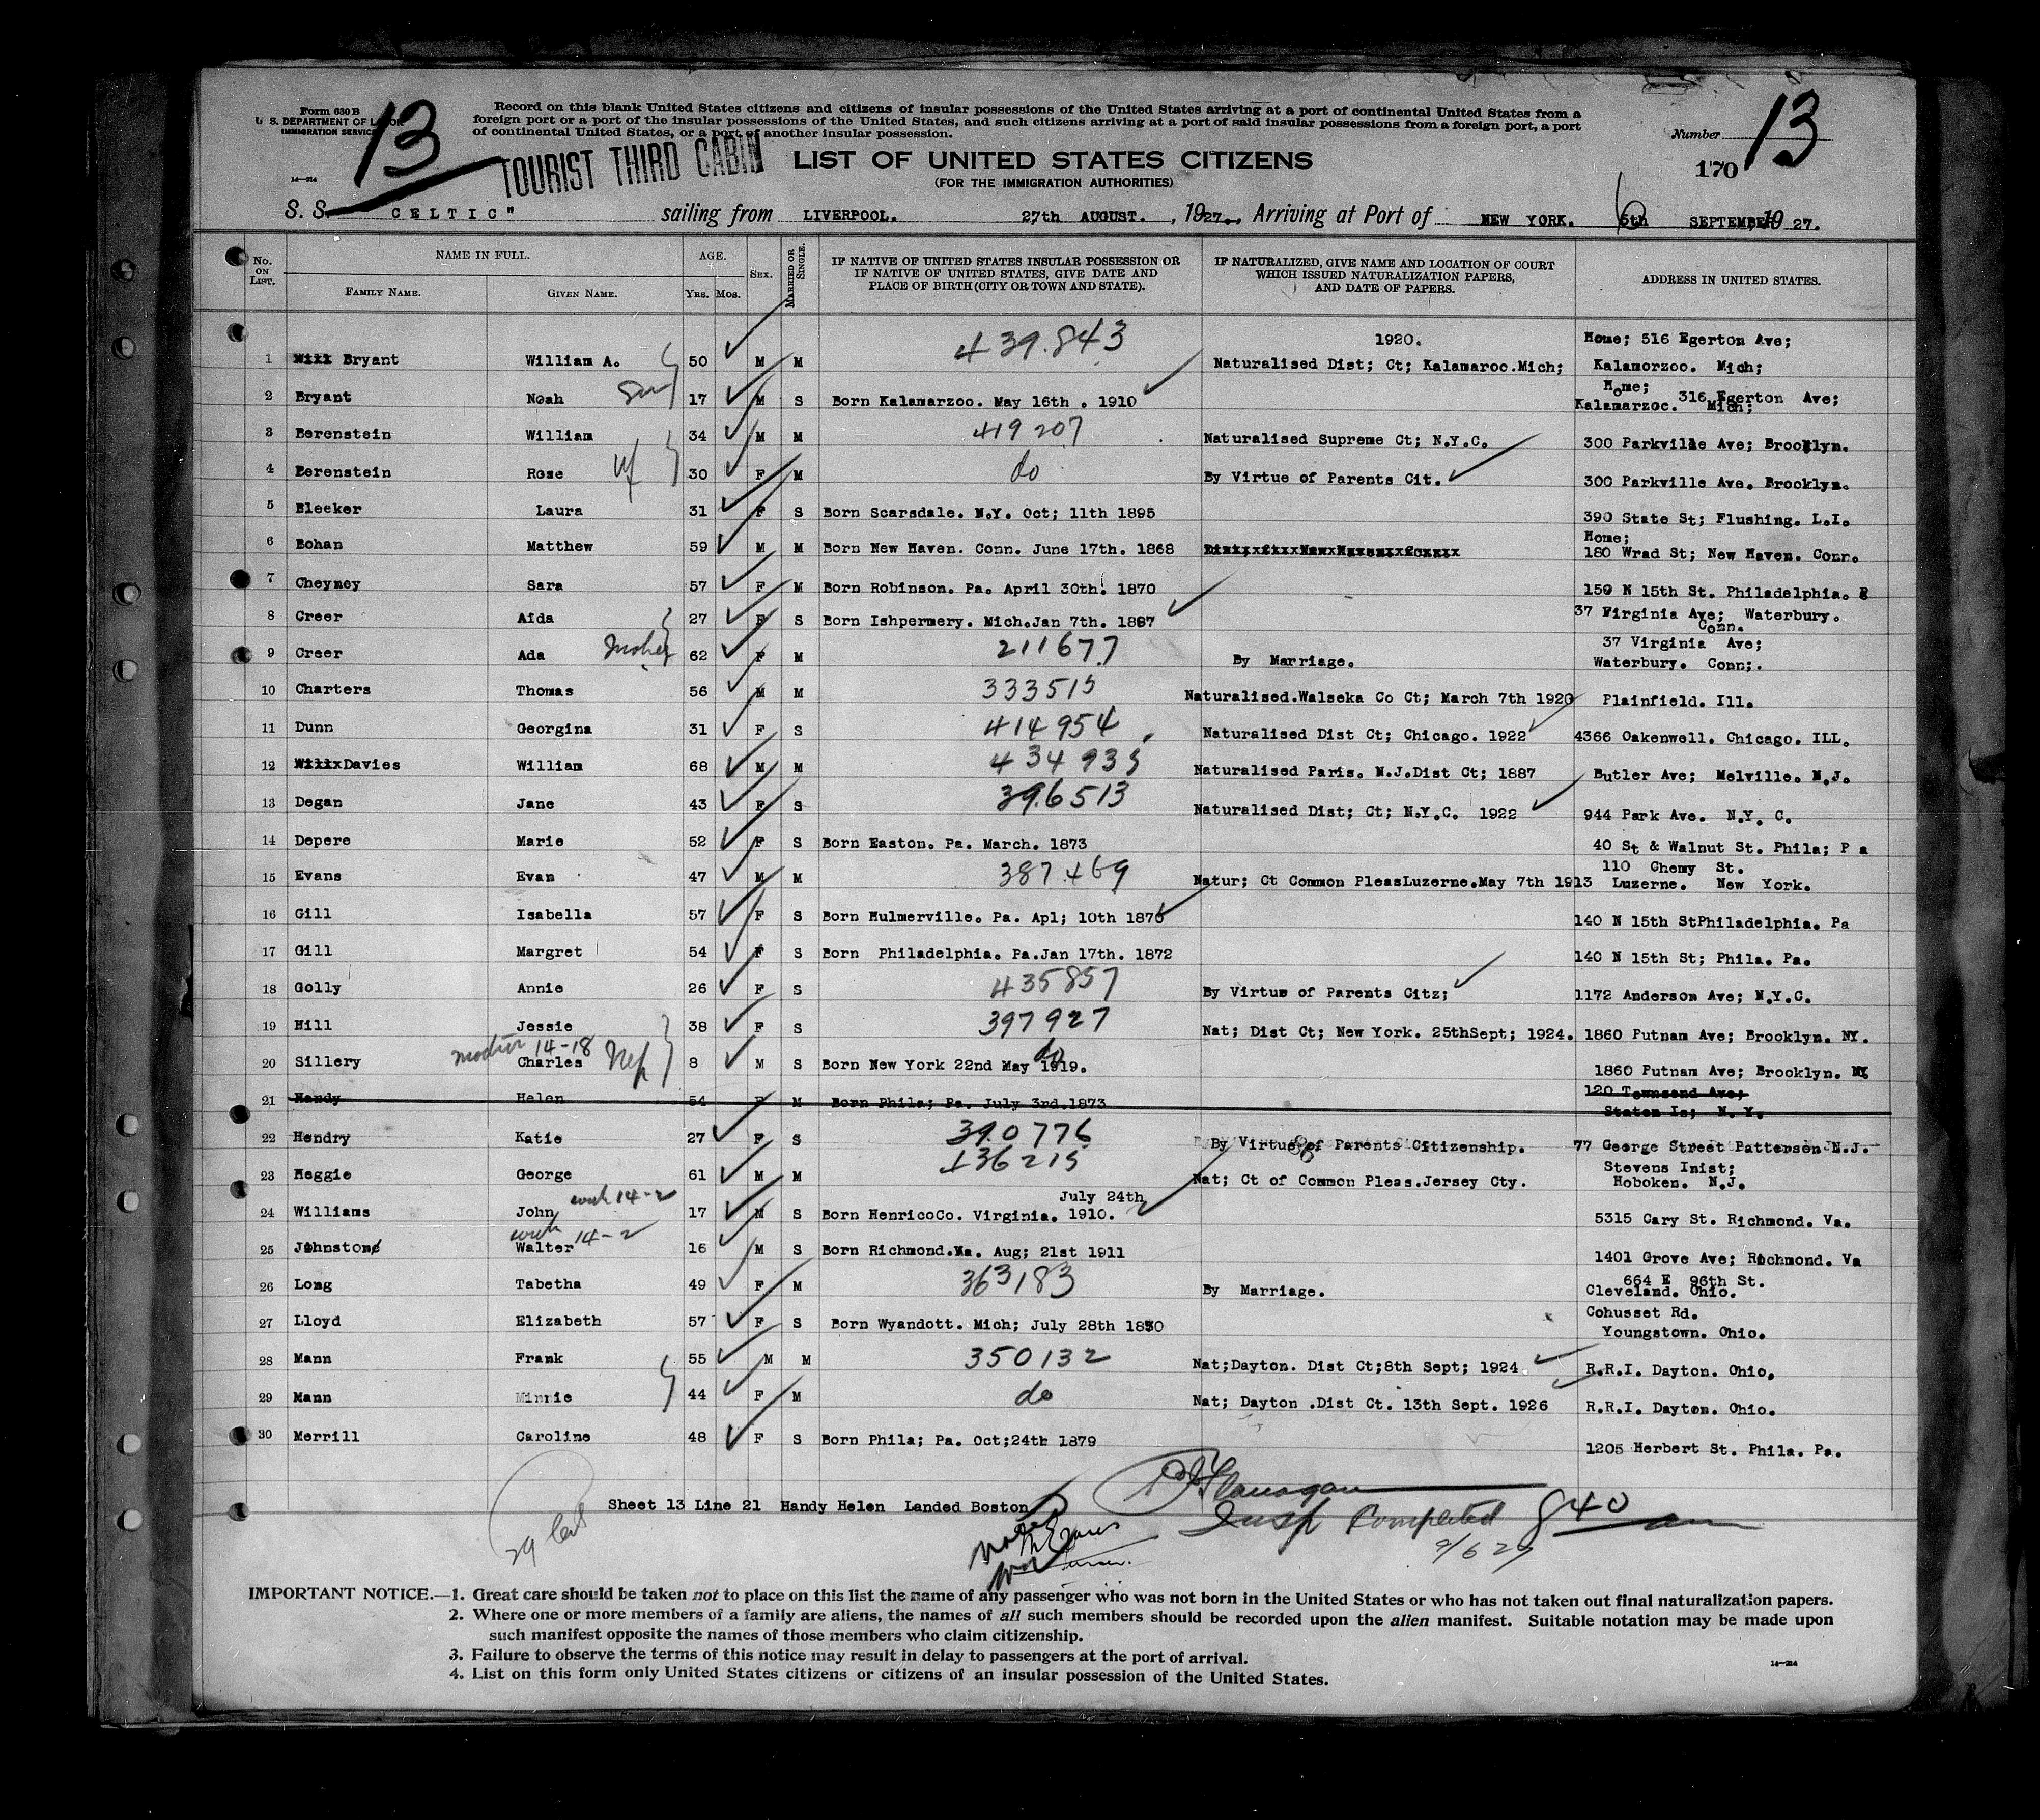 Form 630 B
U. S. DEPARTMENT OF LABOR
IMMIGRATION SERVICE
14—214
13
Record on this blank United States citizens and citizens of insular possessions of the United States arriving at a port of continental United States from a
foreign port or a port of the insular possessions of the United States, and such citizens arriving at a port of said insular possessions from a foreign port, a port
of continental United States, or a port of another insular possession.
Number 13
170
TOURIST THIRD CABIN
LIST OF UNITED STATES CITIZENS
(FOR THE IMMIGRATION AUTHORITIES)
S. S. CELTIC" sailing from LIVERPOOL. 27th AUGUST. , 1927. , Arriving at Port of NEW YORK. 6 5th SEPTEMBER 19 27.
No. ON LIST. NAME IN FULL. AGE. SEX. MARRIED OR SINGLE. IF NATIVE OF UNITED STATES INSULAR POSSESSION OR IF NATIVE OF UNITED STATES, GIVE DATE AND PLACE OF BIRTH (CITY OR TOWN AND STATE). IF NATURALIZED, GIVE NAME AND LOCATION OF COURT WHICH ISSUED NATURALIZATION PAPERS, AND DATE OF PAPERS. ADDRESS IN UNITED STATES.
FAMILY NAME. GIVEN NAME. YRS. MOS.
1 Bryant William A. 50 M M 439.843 1920. Naturalised Dist; Ct; Kalamaroc.Mich; Home; 516 Egerton Ave; Kalamorzoo. Mich;
2 Bryant Noah Son 17 M S Born Kalamarzoo. May 16th . 1910 Home; 316 Egerton Ave; Kalamarzoc. Mich;
3 Berenstein William 34 M M 419207 Naturalised Supreme Ct; N.Y.C. 300 Parkville Ave; Brooklyn.
4 Berenstein Rose Wf 30 F M do By Virtue of Parents Cit. 300 Parkville Ave. Brooklyn.
5 Bleeker Laura 31 F S Born Scarsdale. N.Y. Oct; 11th 1895 390 State St; Flushing. L.I.
6 Bohan Matthew 59 M M Born New Haven. Conn. June 17th. 1868 Home; 180 Wrad St; New Haven. Conn.
7 Cheyney Sara 57 F M Born Robinson. Pa. April 30th. 1870 150 N 15th St. Philadelphia. P
8 Creer Aida 27 F S Born Ishpermery. Mich.Jan 7th. 1887 37 Virginia Ave; Waterbury. Conn.
9 Creer Ada Mother 62 F M 211677 By Marriage. 37 Virginia Ave; Waterbury. Conn;.
10 Charters Thomas 56 M M 333515 Naturalised.Walseka Co Ct; March 7th 1920 Plainfield. Ill.
11 Dunn Georgina 31 F S 414954 Naturalised Dist Ct; Chicago. 1922 4366 Oakenwell. Chicago. ILL.
12 Davies William 68 M M 434935 Naturalised Paris. N.J.Dist Ct; 1887 Butler Ave; Melville. N.J.
13 Degan Jane 43 F S 396513 Naturalised Dist; Ct; N.Y.C. 1922 944 Park Ave. N.Y. C.
14 Depere Marie 52 F S Born Easton. Pa. March. 1873 40 St & Walnut St. Phila; P a
15 Evans Evan 47 M M 387.469 Natur; Ct Common PleasLuzerne.May 7th 1913 110 Chemy St. Luzerne. New York.
16 Gill Isabella 57 F S Born Hulmerville. Pa. Apl; 10th 1870 140 N 15th StPhiladelphia. Pa
17 Gill Margret 54 F S Born Philadelphia. Pa.Jan 17th. 1872 140 N 15th St; Phila. Pa.
18 Golly Annie 26 F S 435857 By Virtue of Parents Citz; 1172 Anderson Ave; N.Y.C.
19 Hill Jessie 38 F S 397927 Nat; Dist Ct; New York. 25thSept; 1924. 1860 Putnam Ave; Brooklyn. NY.
mother 14-18
20 Sillery Charles Nep 8 M S do Born New York 22nd May 1919. 1860 Putnam Ave; Brooklyn. NY
21 Handy Helen 54 F M Born Phila; Pa. July 3rd.1873 120 Townsend Ave; Staten Is; N.Y.
22 Hendry Katie 27 F S 390776 By Virtue of Parents Citizenship. 77 George Street Pattersen N.J.
23 Heggie George 61 M M 136215 Nat; Ct of Common Pleas.Jersey Cty. Stevens Inist; Hoboken. N.J.
with 14-2
24 Williams John 17 M S Born HenricoCo. Virginia. July 24th 1910. 5315 Cary St. Richmond. Va.
with 14-2
25 Johnstone Walter 16 M S Born Richmond.Va. Aug; 21st 1911 1401 Grove Ave; Richmond. Va
26 Long Tabetha 49 F M 363183 By Marriage. 664 E 96th St. Cleveland. Ohio.
27 Lloyd Elizabeth 57 F S Born Wyandott. Mich; July 28th 1850 Cohusset Rd. Youngstown. Ohio.
28 Mann Frank 55 M M 350132 Nat;Dayton. Dist Ct;8th Sept; 1924 R.R.I. Dayton. Ohio.
29 Mann Minnie 44 F M do Nat; Dayton .Dist Ct. 13th Sept. 1926 R.R.I. Dayton. Ohio.
30 Merrill Caroline 48 F S Born Phila; Pa. Oct;24th 1879 1205 Herbert St. Phila. Pa.
Sheet 13 Line 21 Handy Helen Landed Boston
Flanagan
Insp Completed 840 am
9/6 27
29
IMPORTANT NOTICE.—1. Great care should be taken not to place on this list the name of any passenger who was not born in the United States or who has not taken out final naturalization papers.
2. Where one or more members of a family are aliens, the names of all such members should be recorded upon the alien manifest. Suitable notation may be made upon
such manifest opposite the names of those members who claim citizenship.
3. Failure to observe the terms of this notice may result in delay to passengers at the port of arrival.
4. List on this form only United States citizens or citizens of an insular possession of the United States.
14—214